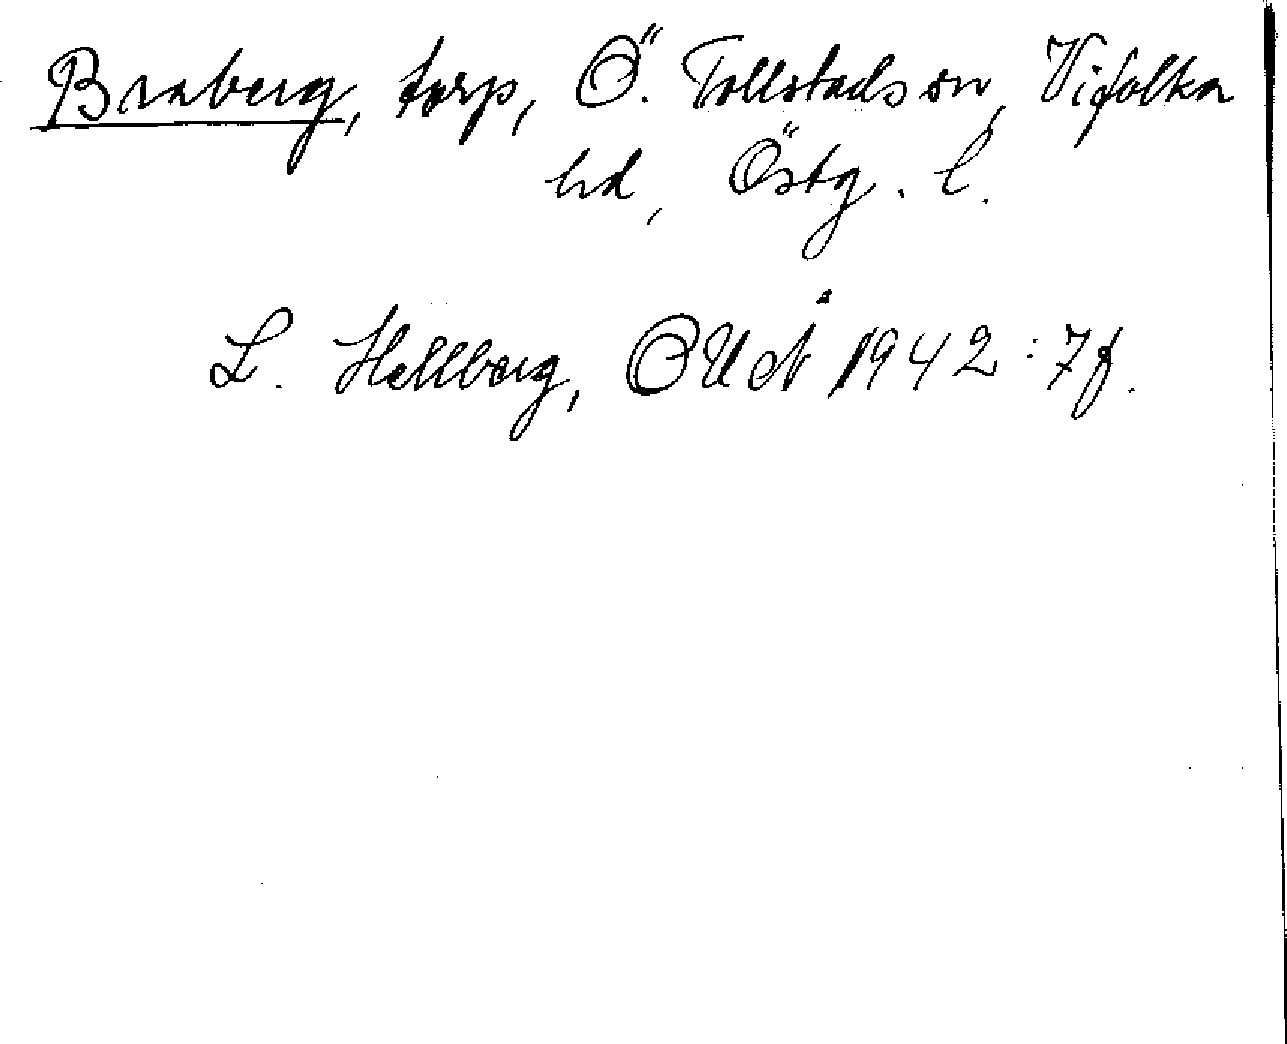 Braberg, torp, Ö. Tollstads sn, Vifolka
hd, Östg. l.
L. Hellberg, OUÅ 1942: 7 f.